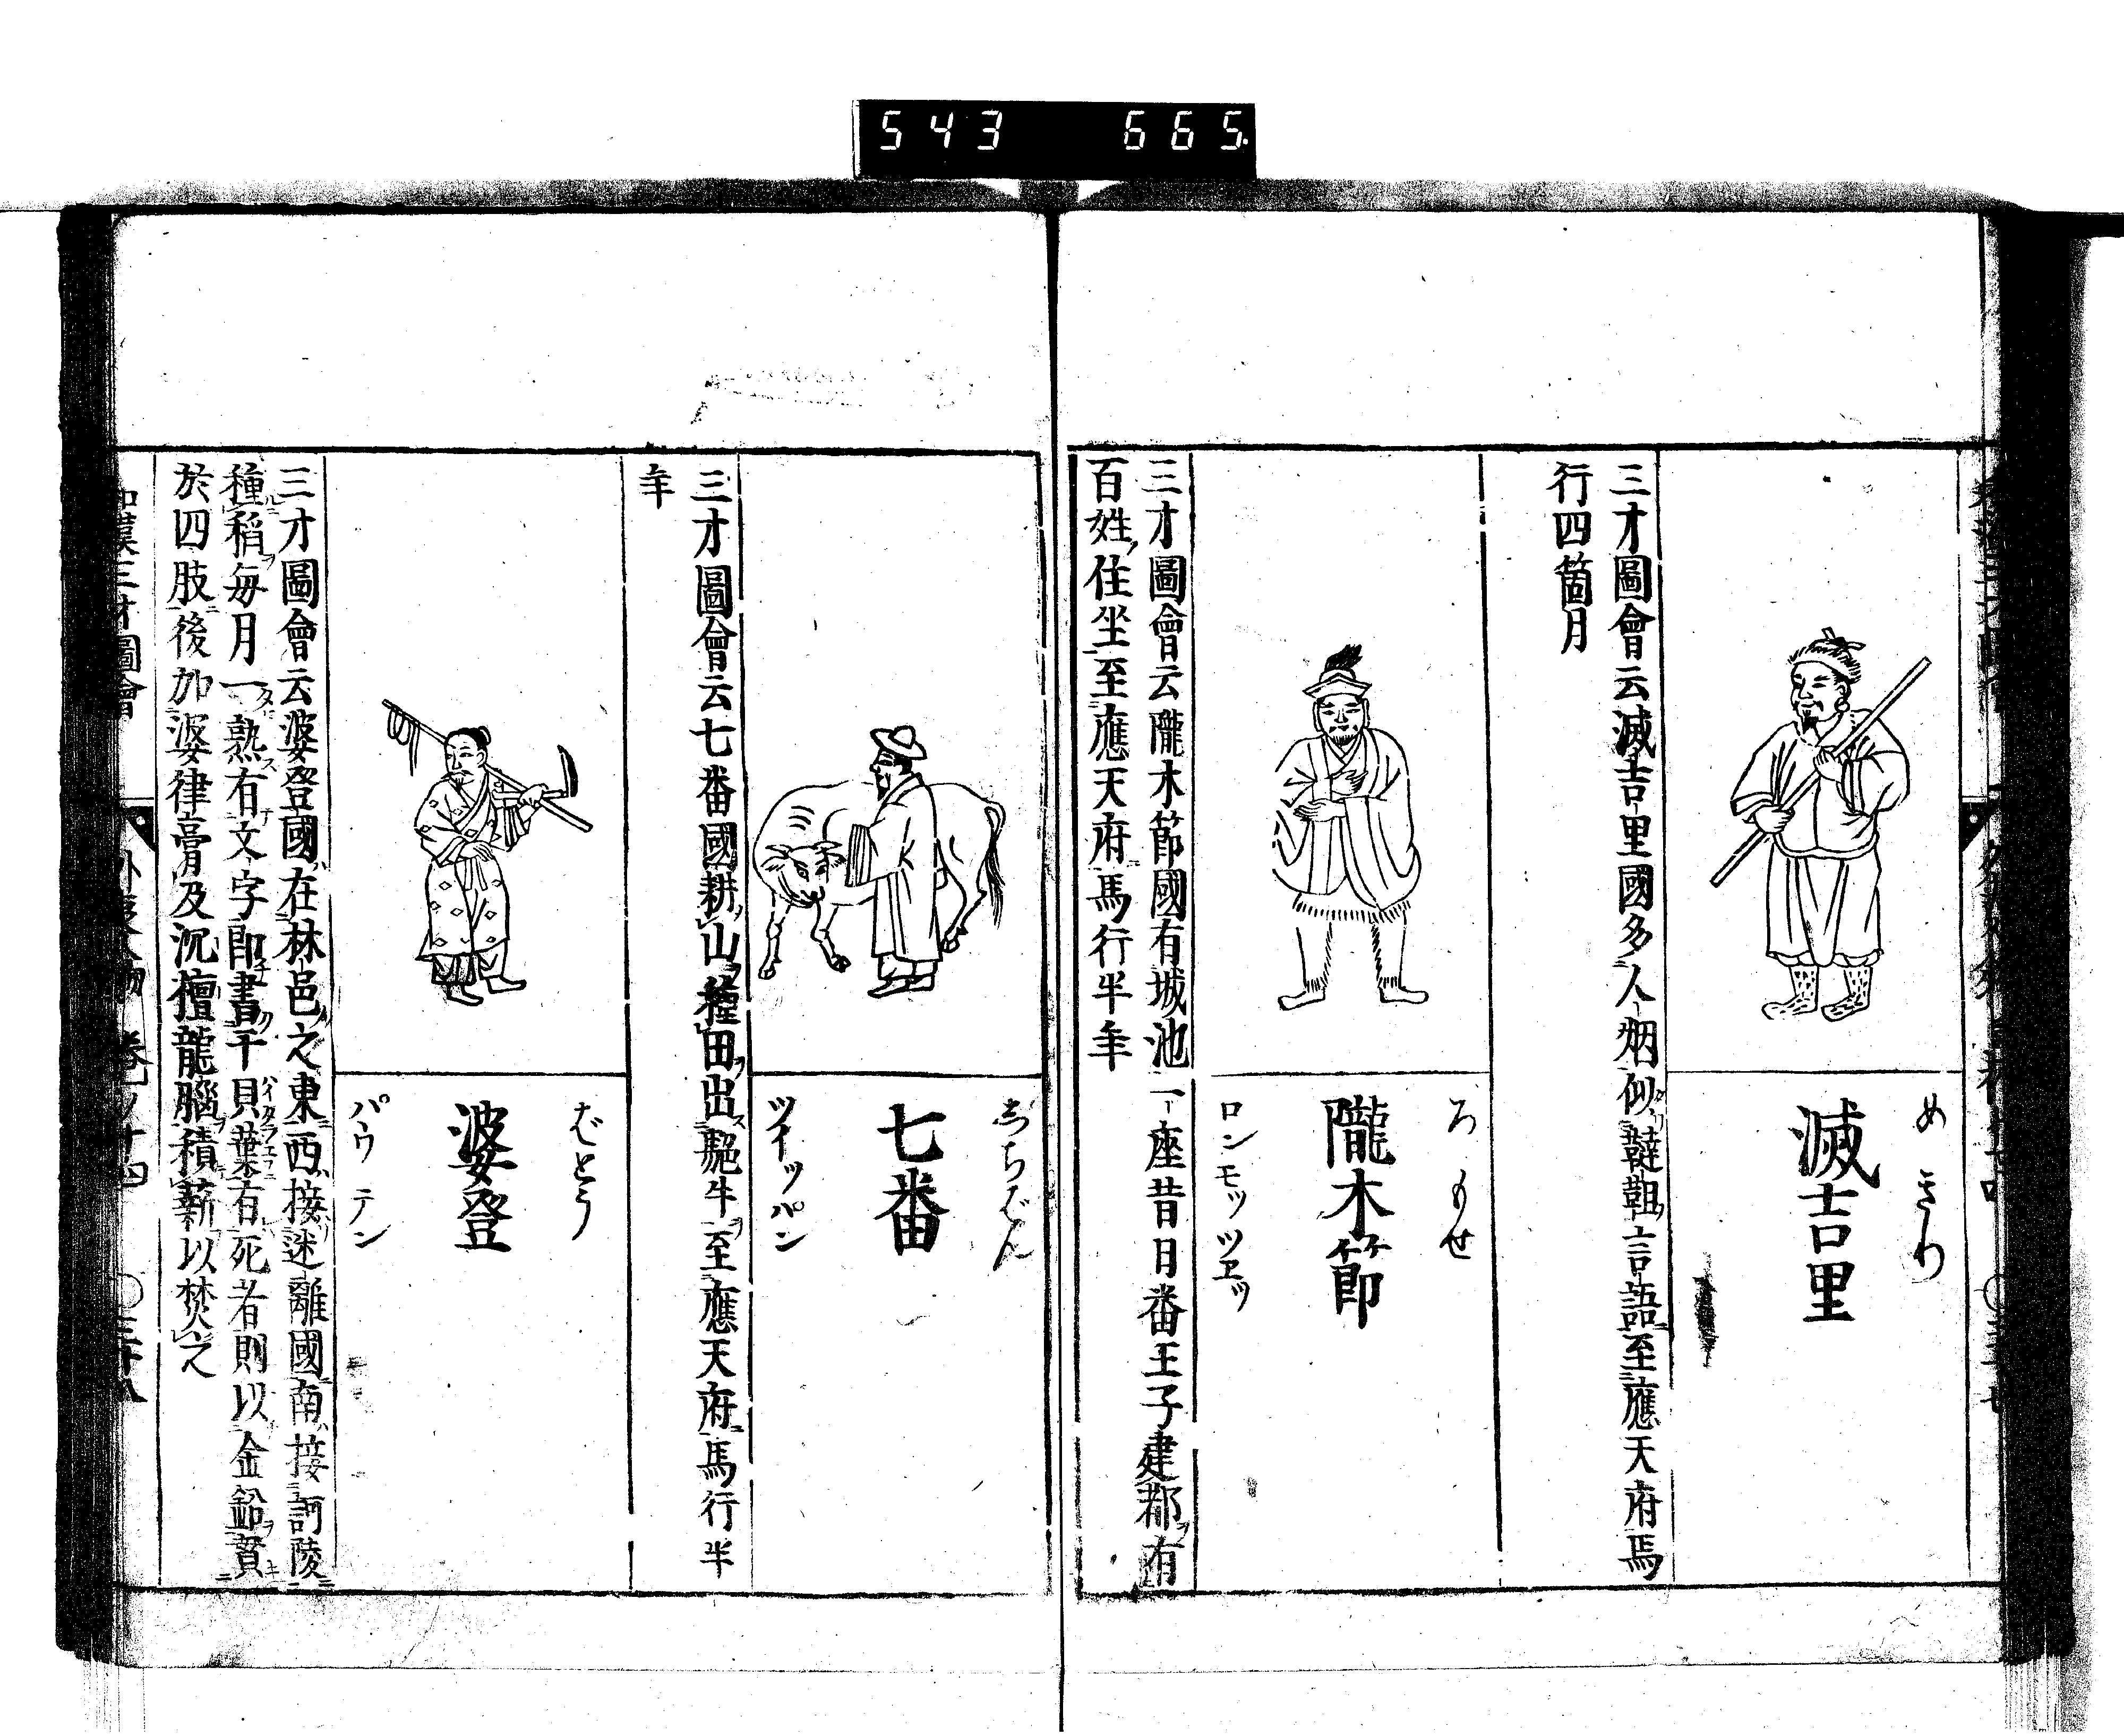 543 665.
めきり
滅吉里
三才圖會云滅吉里國多人烟似韃靼言語至應天府馬
行四箇月
ろもせ
隴木節
ロンモッツヱツ
三才圖會云隴木節國有城池一座昔日番王子建都有
百姓住坐至應天府馬行半年
しちばん
七番
ツイッパン
三才圖會云七番國耕山種田出駞牛至應天府馬行半
年
ばとう
婆登
パウテン
三才圖會云婆登國在林邑之東西接迷離國南接訶陵
種稻毎月一熟有文字即書于貝葉有死者則以金鉛貫
於四肢後加婆律膏及沉檀龍腦積薪以焚之
和漢三才圖會 外夷人物 卷ノ十四 ○三十八